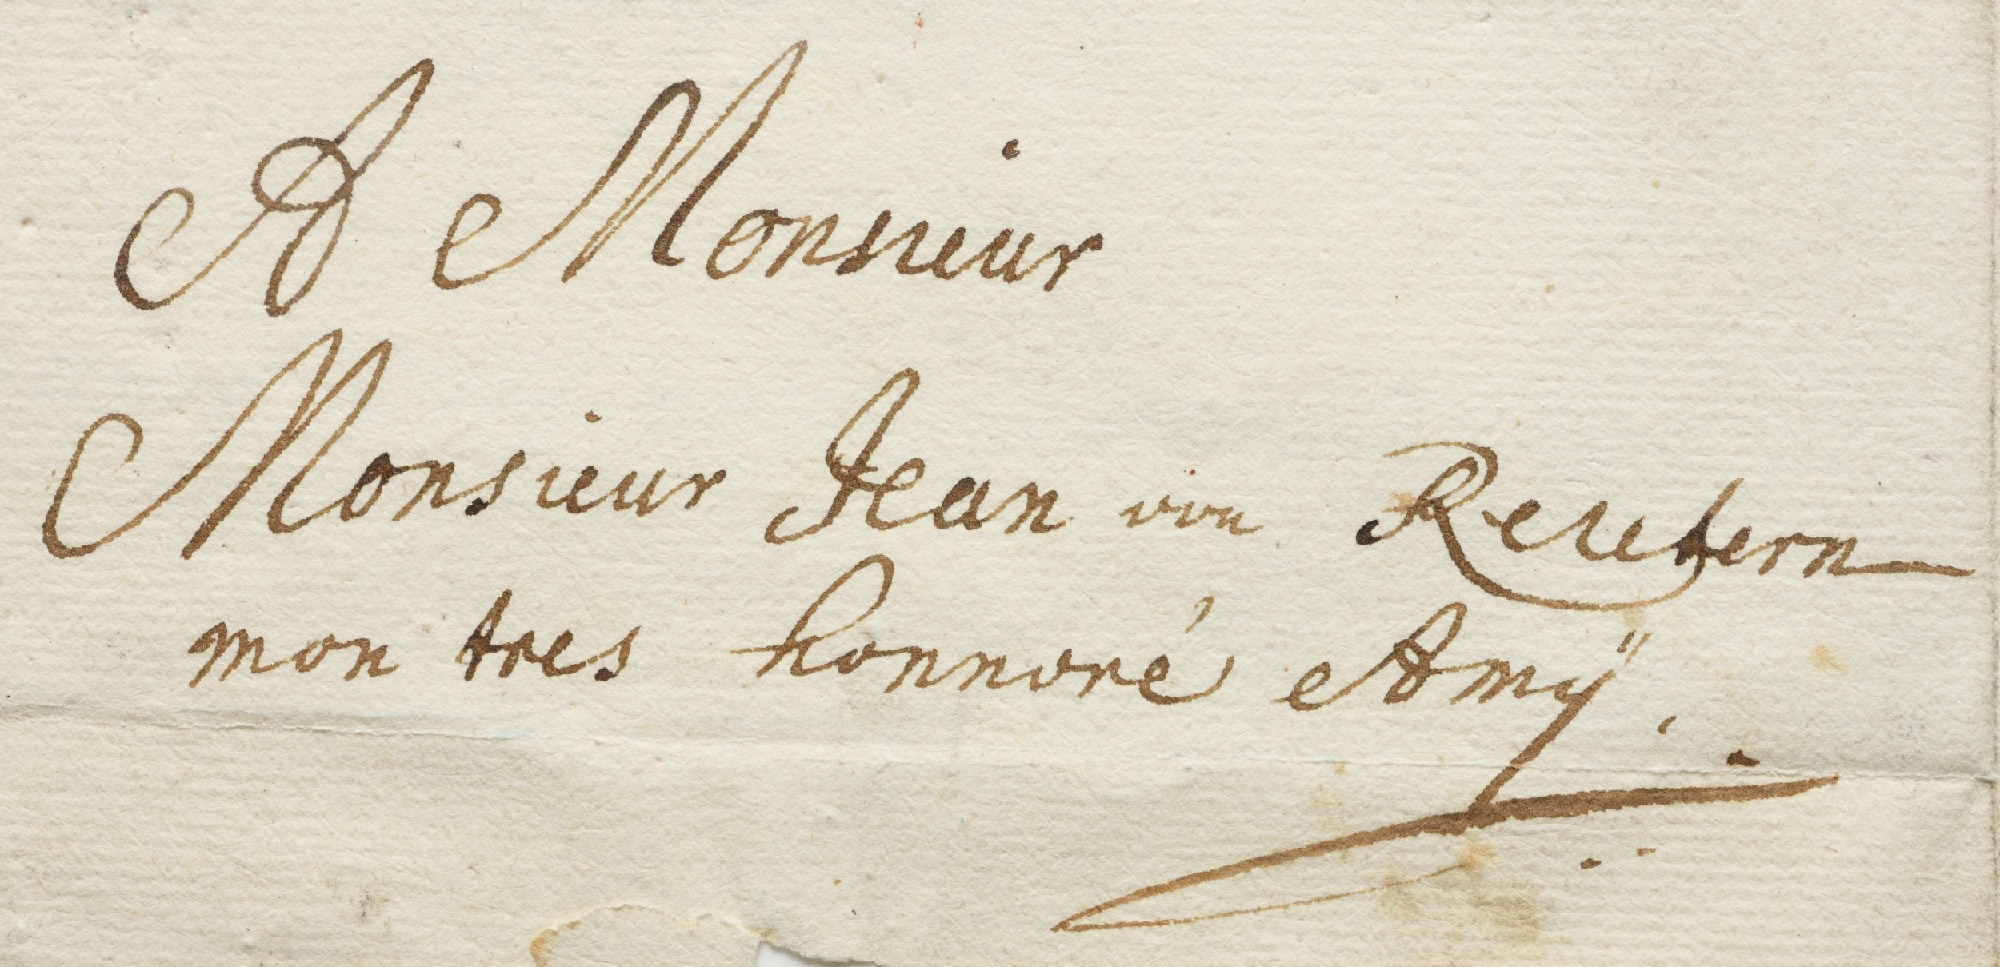 A Monsieur
Monsieur Jean von Reutern
mon tres honnoré Amÿ.